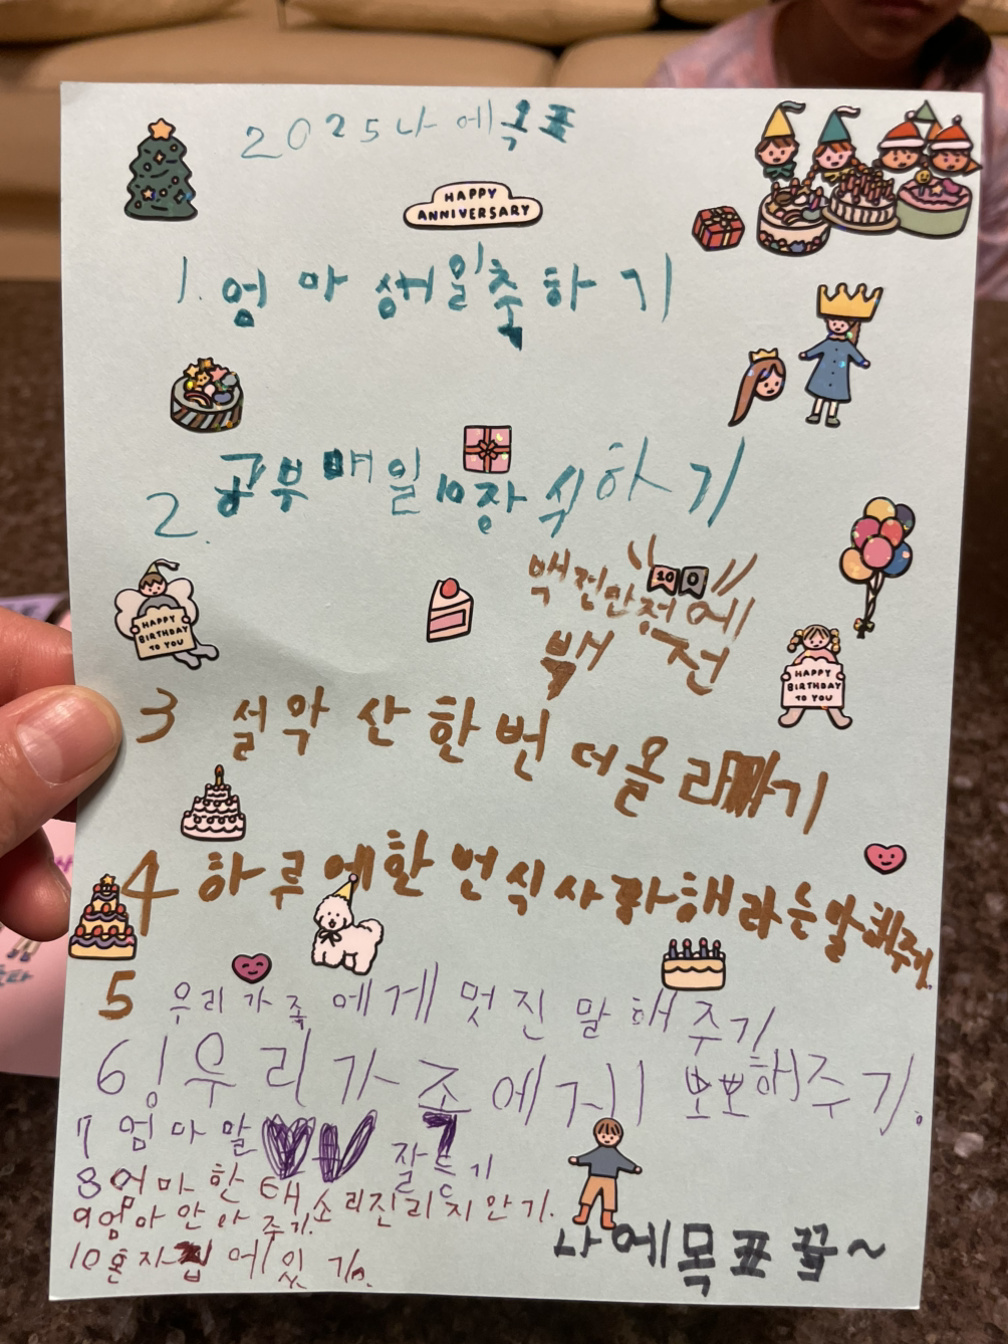 2025나에목표
HAPPY
ANNIVERSARY
1. 엄마생일축하기
2. 공부매일10장식하기
10 0
백점만점에
백점
HAPPY
BIRTHDAY
TO YOU
HAPPY
BIRTHDAY
TO YOU
3 설악산한번더올라가기
4 하루에한번식사랑해라는말해주기.
5 우리가족에게멋진말해주기
6! 우리가조에게 뽀뽀해주기.
7 엄마말 잘듣기
8 엄마한태소리진리지안기.
9 엄마안아주기.
10 혼자집에있기.
나에목표끝~